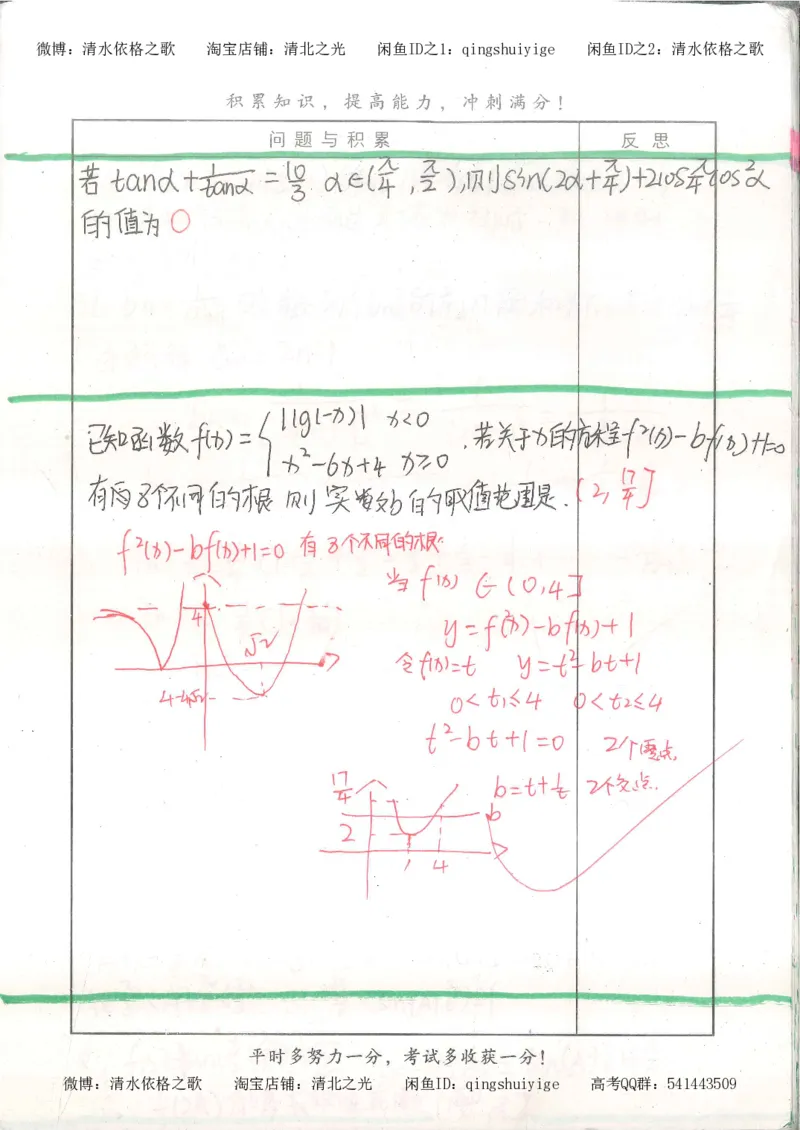 微博：清水依格之歌　淘宝店铺：清北之光　闲鱼ID之1：qingshuiyige　闲鱼ID之2：清水依格之歌
积累知识，提高能力，冲刺满分！
问题与积累　反思
若 tanα+1/tanα=10/3 α∈(π/4,π/2),则sin(2α+π/4)+2cosπ/4cos²α
的值为 0
已知函数f(x)={|lg(-x)| x<0
x²-6x+4 x≥0 ,若关于x的方程f²(x)-bf(x)+1=0
有 8个不同的根 则实数b的取值范围是.(2,17/4]
f²(x)-bf(x)+1=0 有8个不同的根
当f(x)∈(0,4]
y=f²(x)-bf(x)+1
令f(x)=t y=t²-bt+1
0<t₁≤4 0<t₂≤4
t²-bt+1=0 2个零点
b=t+1/t 2个交点.
4
√2
4-4√2
17/4
2
b
1 4
平时多努力一分，考试多收获一分！
微博：清水依格之歌　淘宝店铺：清北之光　闲鱼ID：qingshuiyige　高考QQ群：541443509